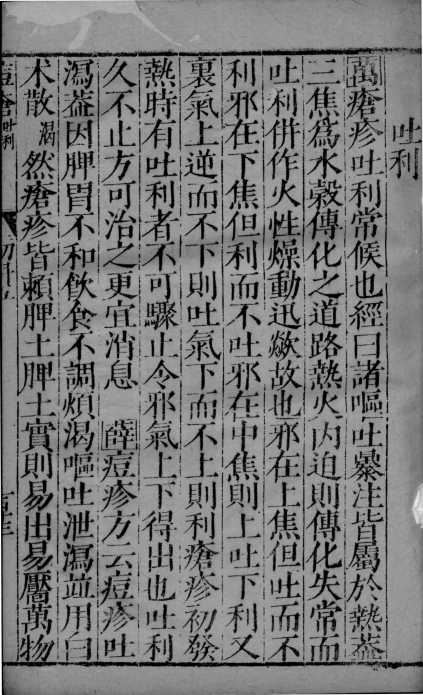 吐利
萬瘡疹吐利常候也經曰諸嘔吐暴注皆屬於熱葢
三焦爲水穀傳化之道路熱火内迫則傳化失常而
吐利併作火性燥動迅歘故也邪在上焦但吐而不
利邪在下焦但利而不吐邪在中焦則上吐下利又
裏氣上逆而不下則吐氣下而不上則利瘡疹初發
熱時有吐利者不可驟止令邪氣上下得出也吐利
久不止方可治之更宜消息 薛痘疹方云痘疹吐
瀉葢因脾胃不和飲食不調煩渴嘔吐泄瀉竝用白
术散渴然瘡疹皆賴脾土脾土實則易出易靨萬物
痘瘡吐利